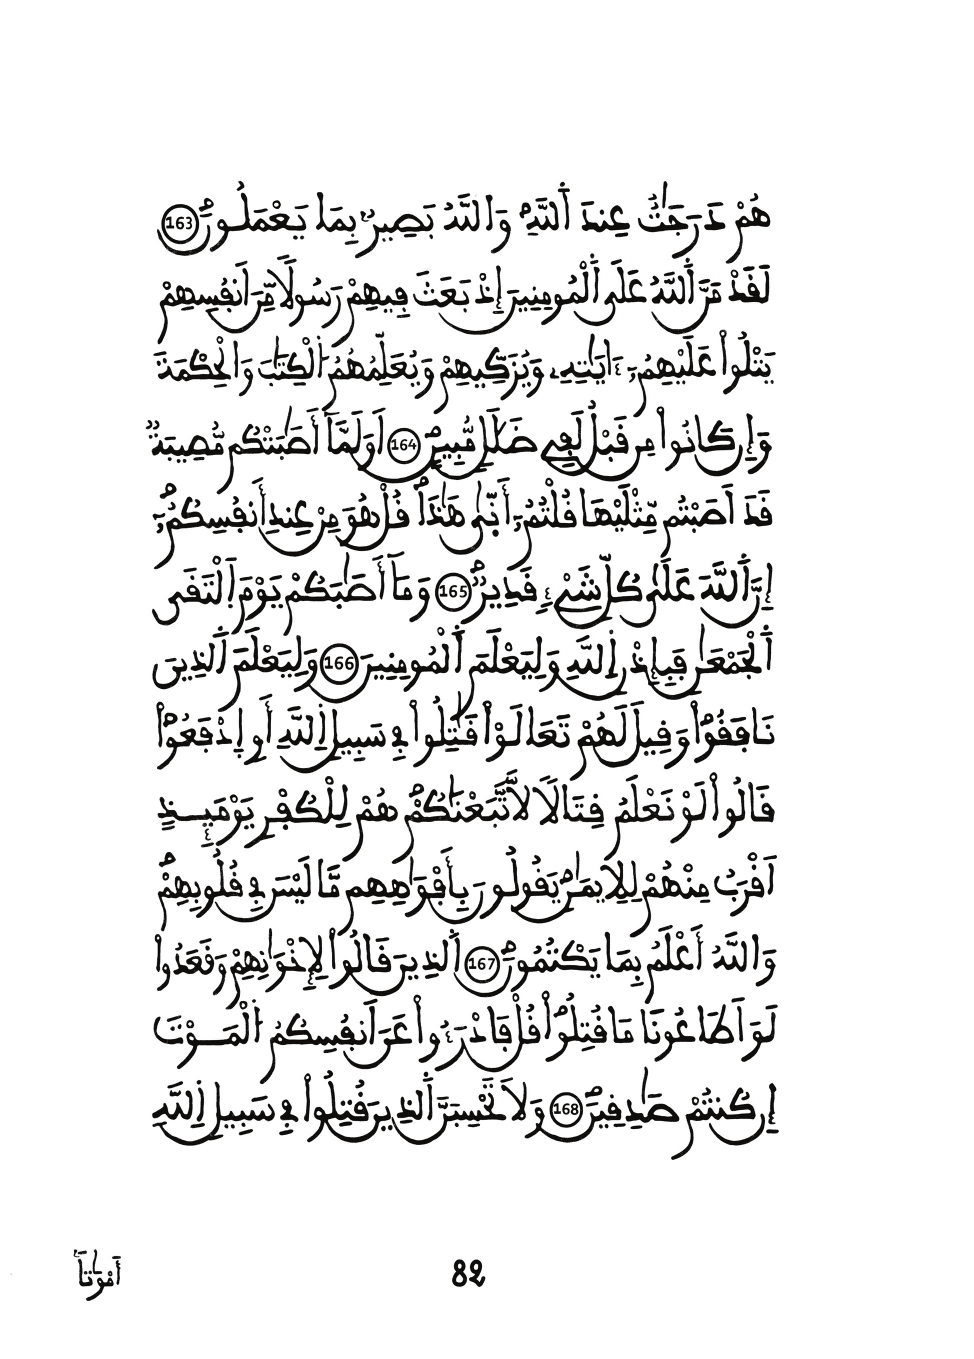 هُمْ دَرَجَٰتٌ عِندَ اَ۬للَّهِۖ وَاللَّهُ بَصِيرُۢ بِمَا يَعْمَلُونَۖ 163
لَقَدْ مَنَّ اَ۬للَّهُ عَلَى اَ۬لْمُومِنِينَ إِذْ بَعَثَ فِيهِمْ رَسُولاٗ مِّنَ اَنفُسِهِمْ
يَتْلُواْ عَلَيْهِمُۥٓ ءَايَٰتِهِۦ وَيُزَكِّيهِمْ وَيُعَلِّمُهُمُ اُ۬لْكِتَٰبَ وَالْحِكْمَةَ
وَإِن كَانُواْ مِن قَبْلُ لَفِے ضَلَٰلٖ مُّبِينٍۖ 164 اَوَلَمَّآ أَصَٰبَتْكُم مُّصِيبَةٞ
قَدَ اَصَبْتُم مِّثْلَيْهَا قُلْتُمُۥٓ أَنّ۪ىٰ هَٰذَاۖ قُلْ هُوَ مِنْ عِندِ أَنفُسِكُمُۥٓۖ
إِنَّ اَ۬للَّهَ عَلَىٰ كُلِّ شَےْءٖ قَدِيرٞۖ 165 وَمَآ أَصَٰبَكُمْ يَوْمَ اَ۪لْتَقَى
اَ۬لْجَمْعَٰنِ فَبِإِذْنِ اِ۬للَّهِ وَلِيَعْلَمَ اَ۬لْمُومِنِينَ 166 وَلِيَعْلَمَ اَ۬لذِينَ
نَافَقُواْۖ وَقِيلَ لَهُمْ تَعَالَوْاْ قَٰتِلُواْ فِے سَبِيلِ اِ۬للَّهِ أَوِ اِ۪دْفَعُواْۖ
قَالُواْ لَوْ نَعْلَمُ قِتَالاٗ لَّاتَّبَعْنَٰكُمْۖ هُمْ لِلْكُفْرِ يَوْمَئِذٍ
اَقْرَبُ مِنْهُمْ لِلِايمَٰنِۖ يَقُولُونَ بِأَفْوَٰهِهِم مَّا لَيْسَ فِے قُلُوبِهِمْۖ
وَاللَّهُ أَعْلَمُ بِمَا يَكْتُمُونَۖ 167 اَ۬لذِينَ قَالُواْ لِإِخْوَٰنِهِمْ وَقَعَدُواْ
لَوَ اَطَاعُونَا مَا قُتِلُواْۖ قُلْ فَادْرَءُواْ عَنَ اَنفُسِكُمُ اُ۬لْمَوْتَ
إِن كُنتُمْ صَٰدِقِينَۖ 168 وَلَا تَحْسِبَنَّ اَ۬لذِينَ قُتِلُواْ فِے سَبِيلِ اِ۬للَّهِ
أَمْوَٰتاَۢ
82